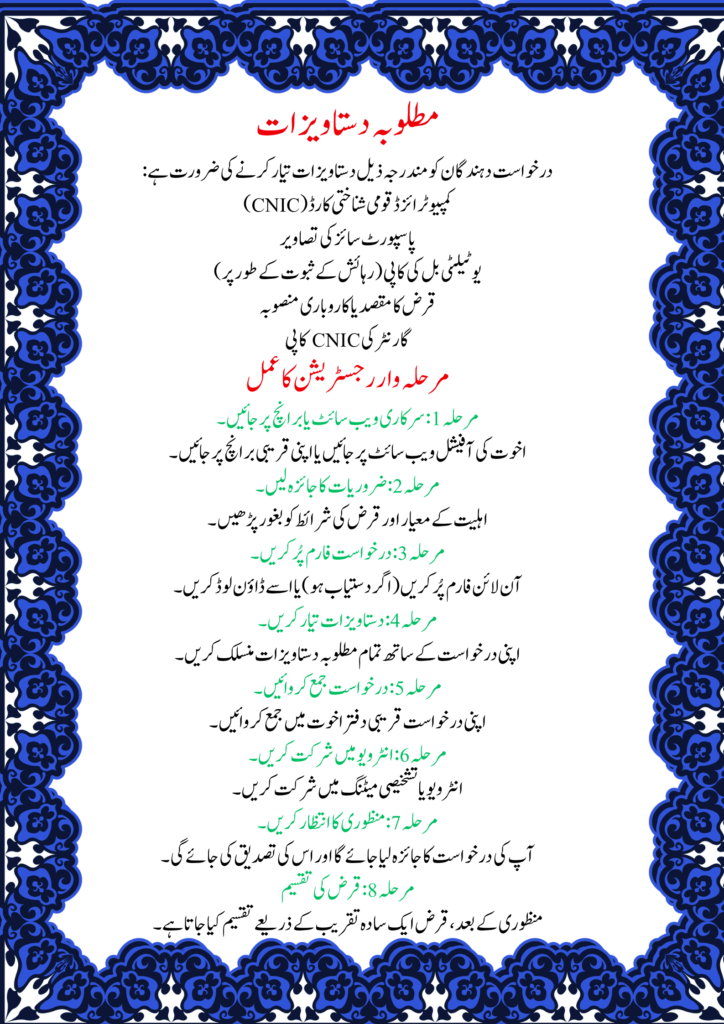 مطلوبہ دستاویزات
درخواست دہندگان کو مندرجہ ذیل دستاویزات تیار کرنے کی ضرورت ہے:
کمپیوٹرائزڈ قومی شناختی کارڈ (CNIC)
پاسپورٹ سائز کی تصاویر
یوٹیلٹی بل کی کاپی (رہائش کے ثبوت کے طور پر)
قرض کا مقصد یا کاروباری منصوبہ
گارنٹر کی CNIC کاپی
مرحلہ وار رجسٹریشن کا عمل
مرحلہ 1: سرکاری ویب سائٹ یا برانچ پر جائیں۔
اخوت کی آفیشل ویب سائٹ پر جائیں یا اپنی قریبی برانچ پر جائیں۔
مرحلہ 2: ضروریات کا جائزہ لیں۔
اہلیت کے معیار اور قرض کی شرائط کو بغور پڑھیں۔
مرحلہ 3: درخواست فارم پُر کریں۔
آن لائن فارم پُر کریں (اگر دستیاب ہو) یا اسے ڈاؤن لوڈ کریں۔
مرحلہ 4: دستاویزات تیار کریں۔
اپنی درخواست کے ساتھ تمام مطلوبہ دستاویزات منسلک کریں۔
مرحلہ 5: درخواست جمع کروائیں۔
اپنی درخواست قریبی دفتر اخوت میں جمع کروائیں۔
مرحلہ 6: انٹرویو میں شرکت کریں۔
انٹرویو یا تشخیصی میٹنگ میں شرکت کریں۔
مرحلہ 7: منظوری کا انتظار کریں۔
آپ کی درخواست کا جائزہ لیا جائے گا اور اس کی تصدیق کی جائے گی۔
مرحلہ 8: قرض کی تقسیم
منظوری کے بعد، قرض ایک سادہ تقریب کے ذریعے تقسیم کیا جاتا ہے۔